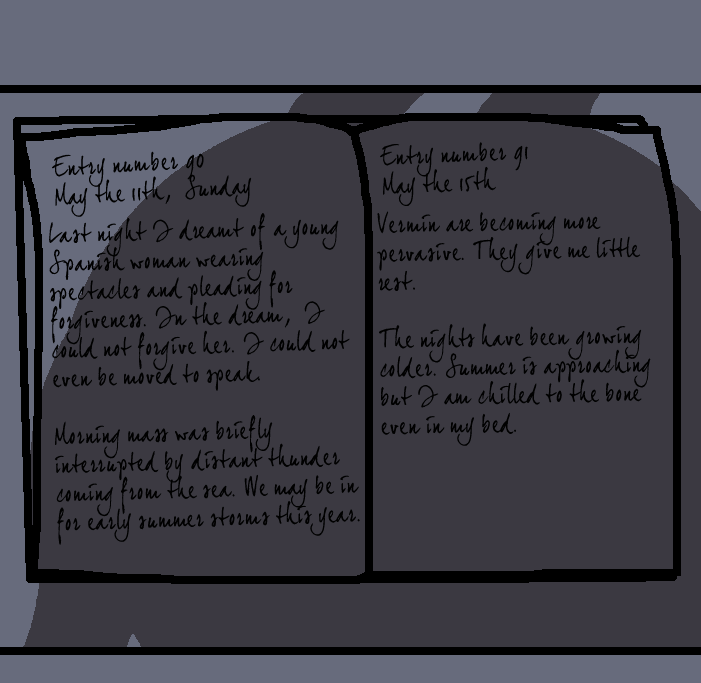 Entry number 90
May the 11th, Sunday
Last night I dreamt of a young
Spanish woman wearing
spectacles and pleading for
forgiveness. In the dream, I
could not forgive her. I could not
even be moved to speak.
Morning mass was briefly
interrupted by distant thunder
coming from the sea. We may be in
for early summer storms this year.
Entry number 91
May the 15th
Vermin are becoming more
pervasive. They give me little
rest.
The nights have been growing
colder. Summer is approaching
but I am chilled to the bone
even in my bed.